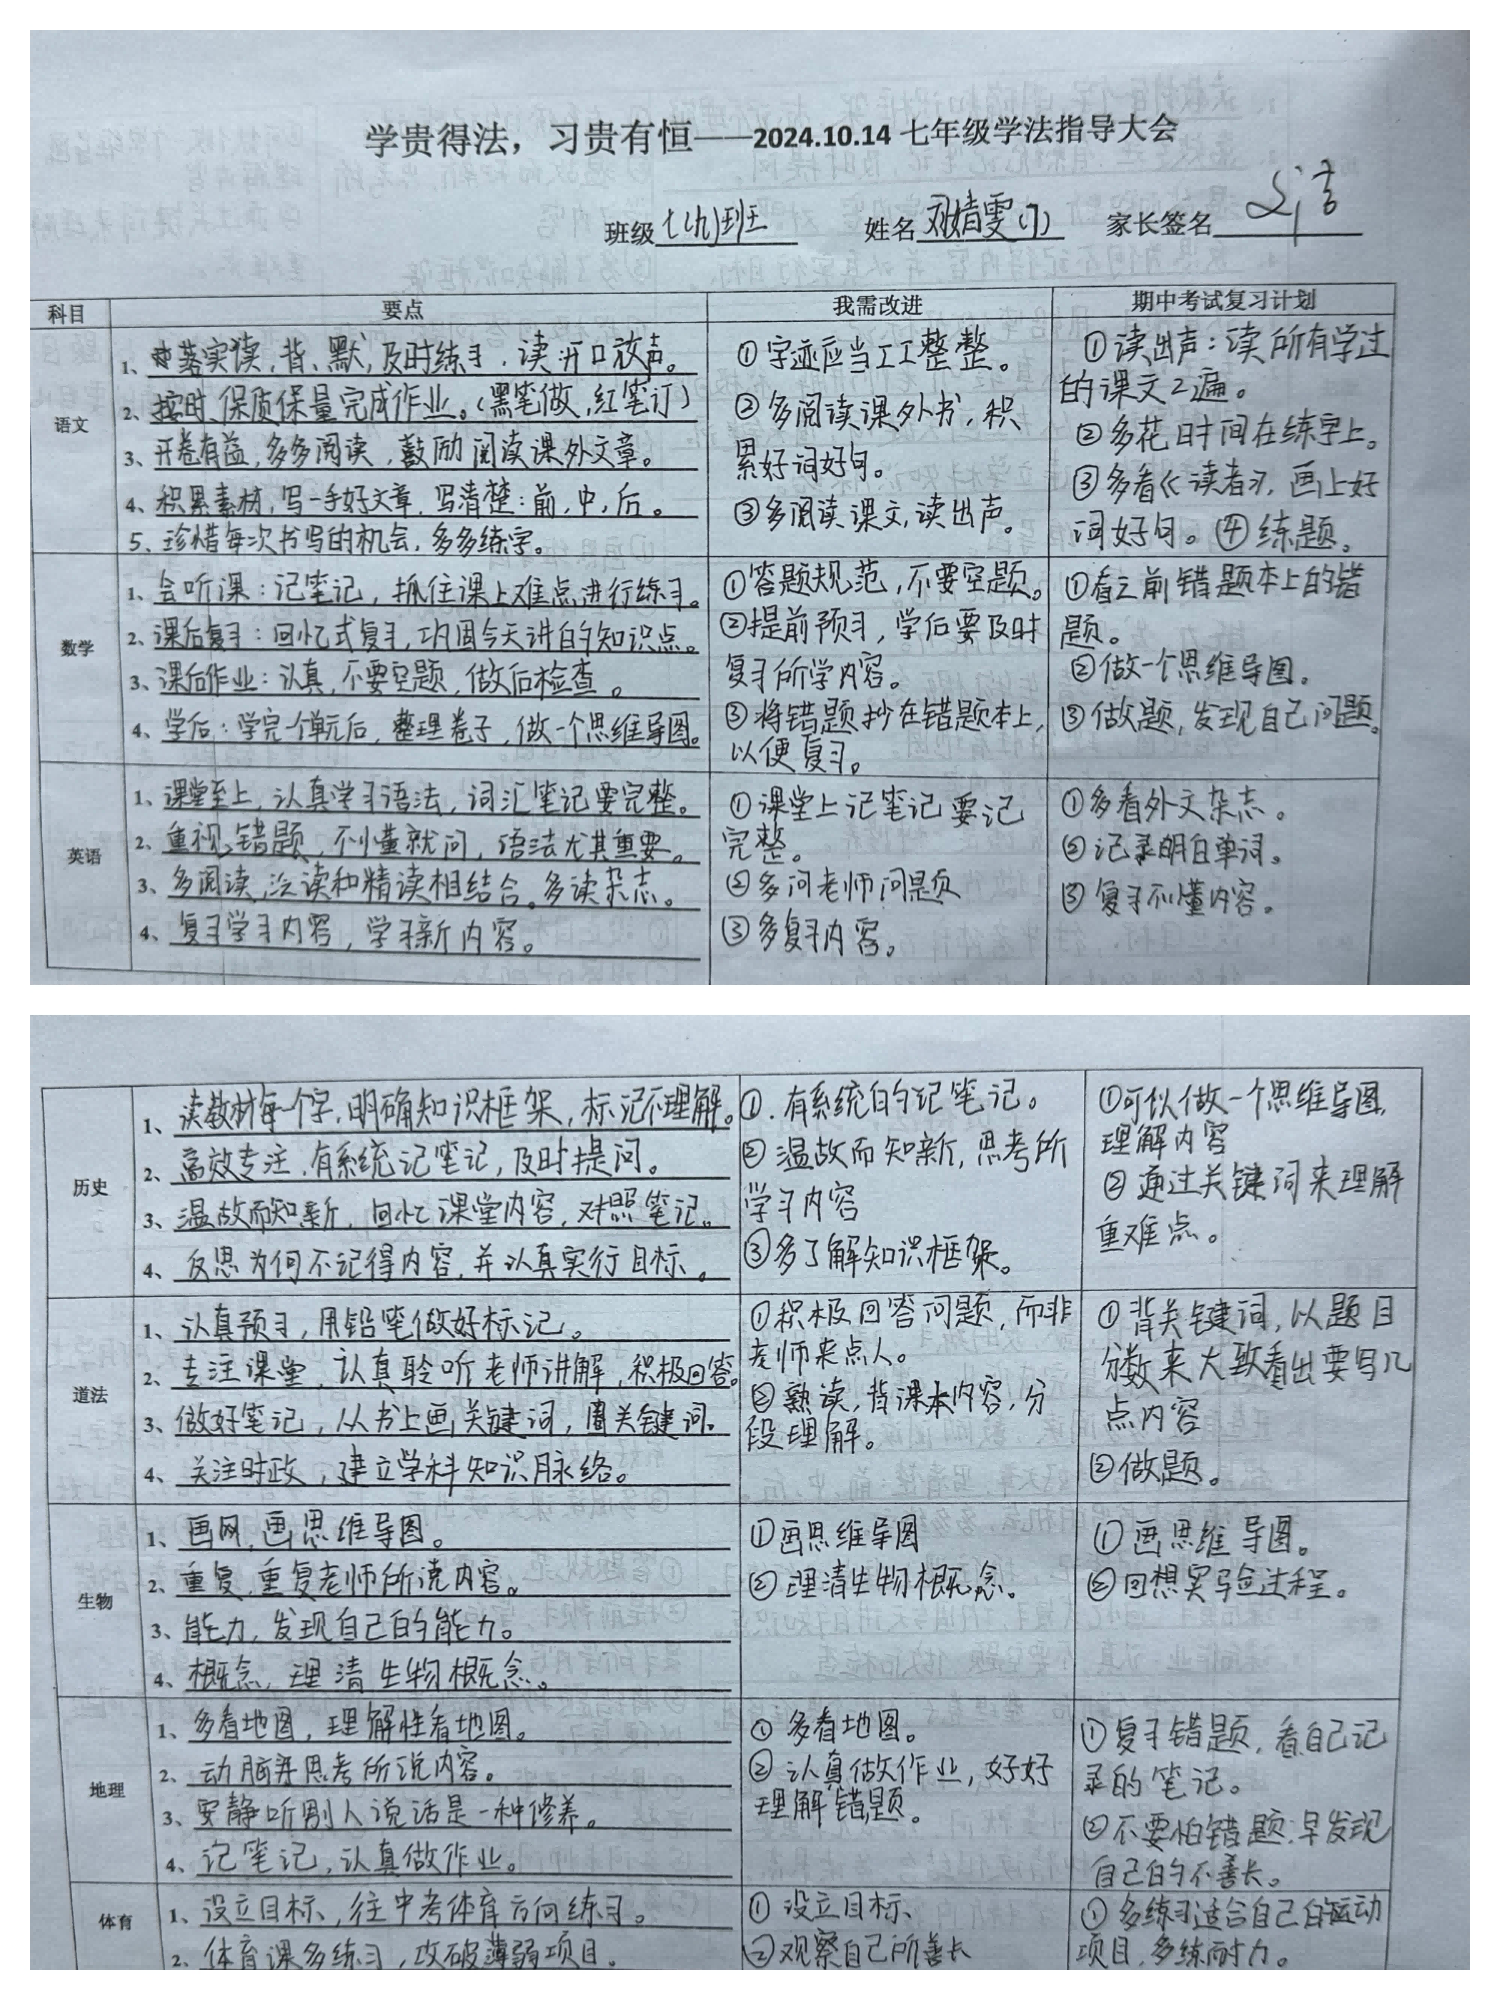 学贵得法，习贵有恒——2024.10.14 七年级学法指导大会
班级 七(九)班 姓名 婧雯(7) 家长签名
科目 要点 我需改进 期中考试复习计划
语文
1、落实读，背、默，及时练习，读：开口放声。
2、按时、保质保量完成作业。（黑笔做，红笔订）
3、开卷有益，多多阅读，鼓励阅读课外文章。
4、积累素材，写一手好文章，写清楚：前，中，后。
5、珍惜每次书写的机会，多多练字。
①字迹应当工工整整。
②多阅读课外书，积
累好词好句。
③多阅读课文，读出声。
①读出声：读所有学过
的课文2遍。
②多花时间在练字上。
③多看《读者》，画上好
词好句。④练题。
数学
1、会听课：记笔记，抓住课上难点进行练习。
2、课后复习：回忆式复习，巩固今天讲的知识点。
3、课后作业：认真，不要空题，做后检查。
4、学后：学完一个单元后，整理卷子，做一个思维导图。
①答题规范，不要空题。
②提前预习，学后要及时
复习所学内容。
③将错题抄在错题本上，
以便复习。
①看之前错题本上的错
题。
②做一个思维导图。
③做题，发现自己问题。
英语
1、课堂至上，认真学习语法，词汇笔记要完整。
2、重视错题，不懂就问，语法尤其重要。
3、多阅读，泛读和精读相结合。多读杂志。
4、复习学习内容，学习新内容。
①课堂上记笔记要记
完整。
②多问老师问题
③多复习内容。
①多看外文杂志。
②记录明白单词。
③复习不懂内容。
历史
1、读教材每一个字，明确知识框架，标记不理解。
2、高效专注，有系统记笔记，及时提问。
3、温故而知新，回忆课堂内容，对照笔记。
4、反思为何不记得内容，并认真实行目标。
①.有系统的记笔记。
②温故而知新，思考所
学习内容
③多了解知识框架。
①可以做一个思维导图，
理解内容
②通过关键词来理解
重难点。
道法
1、认真预习，用铅笔做好标记。
2、专注课堂，认真聆听老师讲解，积极回答。
3、做好笔记，从书上画关键词，圈关键词。
4、关注时政，建立学科知识脉络。
①积极回答问题，而非
老师来点人。
②熟读，背课本内容，分
段理解。
①背关键词，以题目
分数来大致看出要写几
点内容
②做题。
生物
1、画网，画思维导图。
2、重复，重复老师所说内容。
3、能力，发现自己的能力。
4、概念，理清生物概念。
①画思维导图
②理清生物概念。
①画思维导图。
②回想实验过程。
地理
1、多看地图，理解性看地图。
2、动脑并思考所说内容。
3、安静听别人说话是一种修养。
4、记笔记，认真做作业。
①多看地图。
②认真做作业，好好
理解错题。
①复习错题，看自己记
录的笔记。
②不要怕错题，早发现
自己的不善长。
体育
1、设立目标，往中考体育方向练习。
2、体育课多练习，攻破薄弱项目。
①设立目标、
②观察自己所善长
①多练习适合自己的运动
项目，多练耐力。